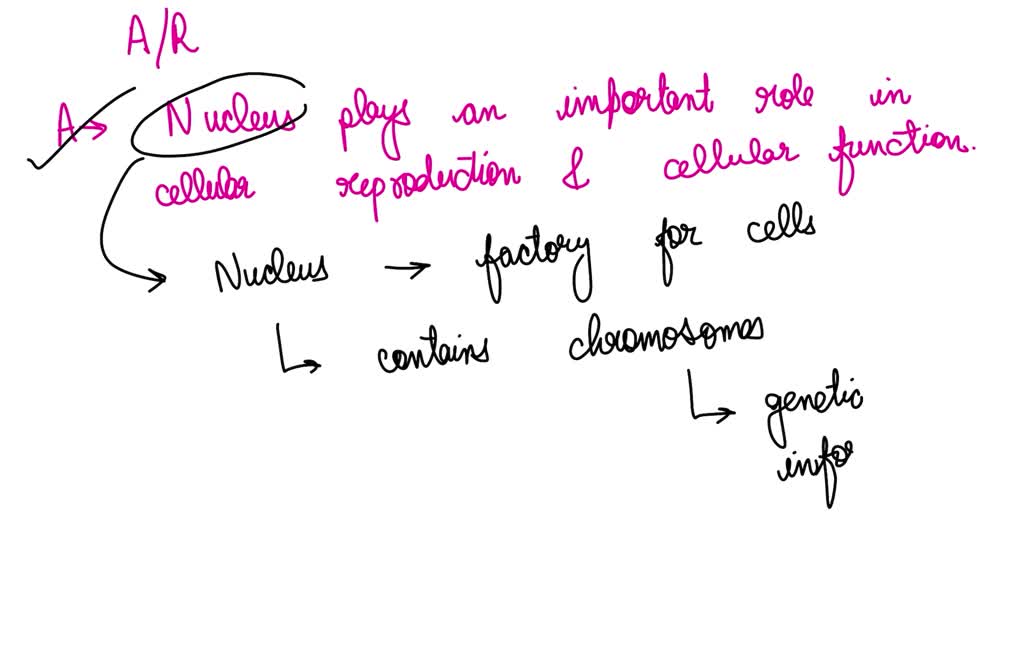 A/R
A→ Nucleus plays an important role in
cellular reproduction & cellular function.
Nucleus → factory for cells
↳ contains chromosomes
↳ genetic
info